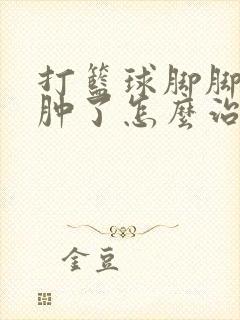 打籃球脚脚
肿了怎麽治
金豆